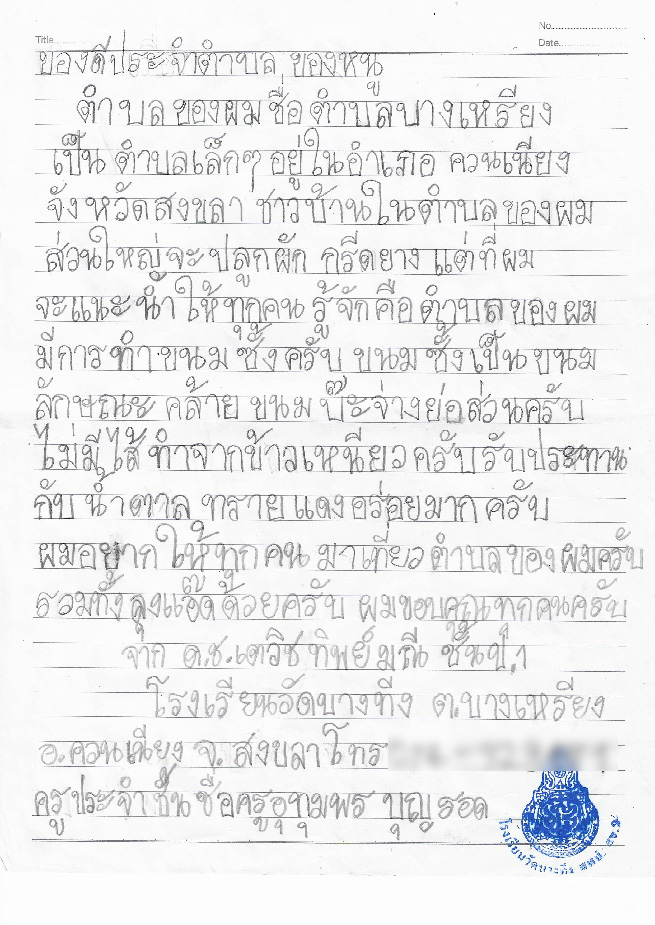 No.
Title
Date
ของดีประจำตำบล ของหนู
ตำบลของผม ชื่อ ตำบลบางเหรียง
เป็น ตำบลเล็กๆ อยู่ในอำเภอ ควนเนียง
จังหวัดสงขลา ชาวบ้านในตำบลของผม
ส่วนใหญ่จะปลูกผัก กรีดยาง แต่ที่ผม
จะแนะนำ ให้ทุกคน รู้จักคือ ตำบลของผม
มีการทำขนม ซั้งครับ ขนม ซั้งเป็นขนม
ลักษณะ คล้าย ขนม บ๊ะจ่างย่อส่วนครับ
ไม่มีไส้ ทำจากข้าวเหนียว ครับรับประทาน
กับ น้ำตาล ทรายแดงอร่อยมาก ครับ
ผมอยาก ให้ทุกคน มาเที่ยวตำบลของผมครับ
รวมทั้งลุงแอ๊ดด้วยครับ ผมขอบคุณทุกคนครับ
จาก ด.ช.เตวิช ทิพย์มณี ชั้นป.1
โรงเรียนวัดบางทีง ต.บางเหรียง
อ.ควนเนียง จ.สงขลา โทร
ครูประจำชั้น ชื่อครูอุทุมพร บุญรอด
โรงเรียนวัดบางทีง สพป. สข.๒